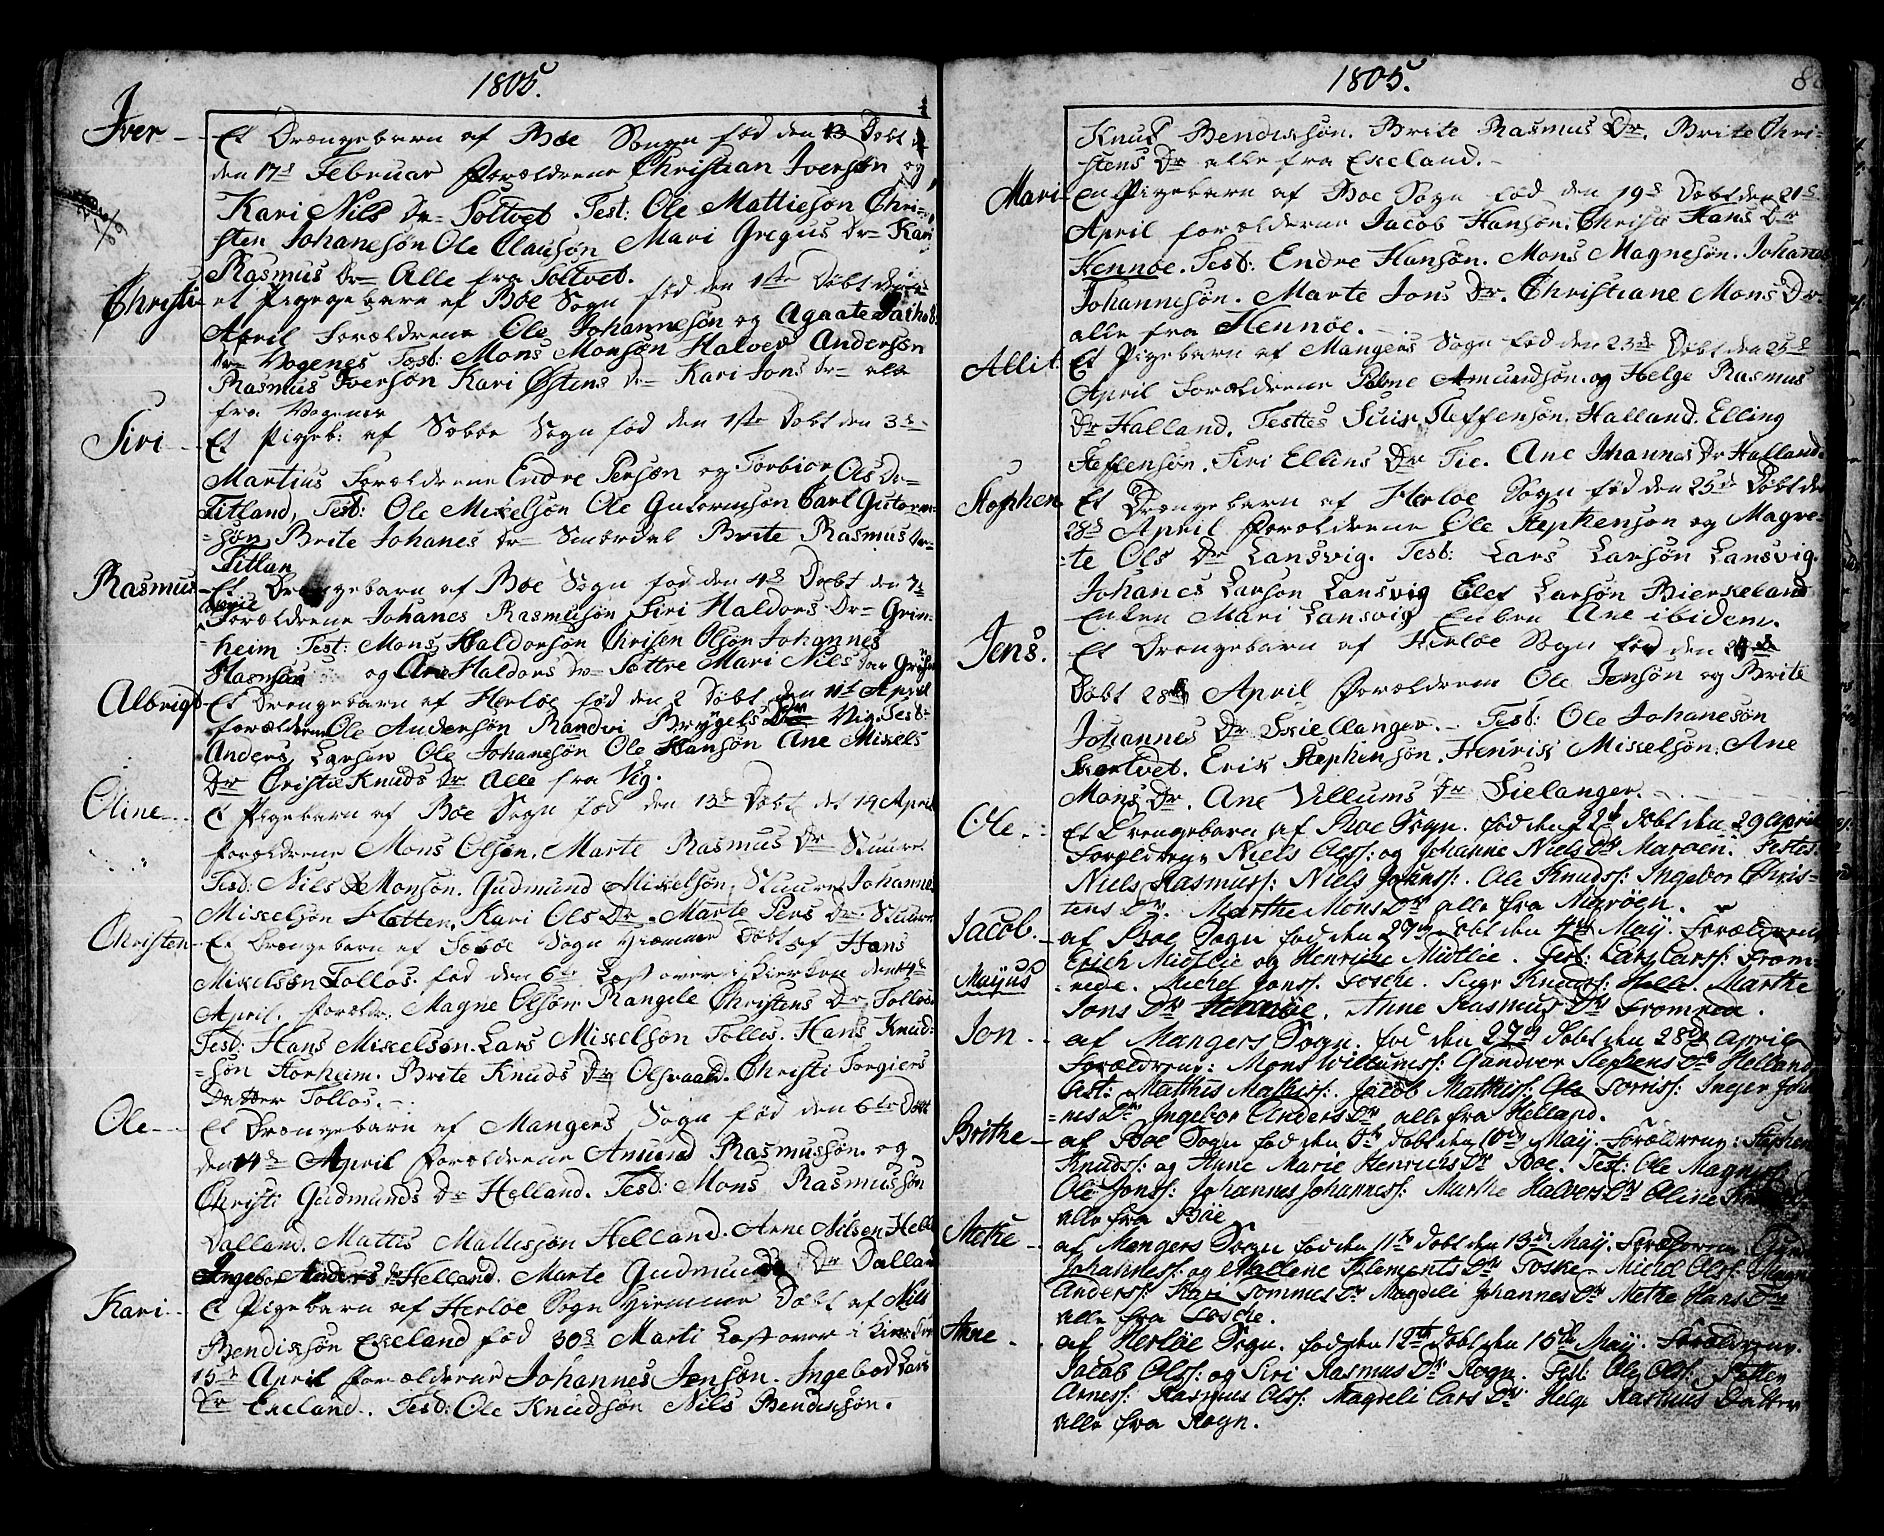 1805.
Iver - Et Drængebarn af Bøe Songn fød den 13 Døbt
den 17d Februar Forældrene Christian Iversøn og
Kari Nils Dr Toltvet Test: Ole Mattiesøn Chri-
sten Johanesøn Ole Clausøn Mari Gregus Dr Kari
Rasmus Dr Alle fra Toltvet.
Christi et Pigegebarn af Bøe Sogn fød den 1ste Døbt den
April Forældrene Ole Johannesøn og Agaate Jachob
Dr Vogenes Test: Mons Monsøn Halver Andersøn
Rasmus Iversøn Kari Østens Dr Kari Jons Dr alle
fra Vogenes
Siri - Et Pigeb: af Sæbøe Sogn fød den 1ste Døbt den 3d
Martius Forældrene Endre Persøn og Torbior Ols Dr
Titland, Test: Ole Mikelsøn Ole Gutormsøn Carl Gutorm-
-søn, Brite Johanes Dr Smørdal Brite Rasmus Dr
Titlan
Rasmus - Et Drængebarn af Bøe Sogn fød den 4d Døbt den 7d
April
Forældrene Johanes Rasmusøn Siri Haldors Dr Grim-
heim Test: Mons Haldorsøn Christen Olsøn Johannes
Hansøn og Ane Haldors Dr Sættre Mari Nils Dr
Albrigt Et Drængebarn af Herløe fød den 2 Døbt den 11t April
forældrene Ole Andersøn Randvi Brygels Dr Vig. Test-
Anders Larsøn Ole Johanesøn Ole Hansøn Ane Mikels
Dr Cristie Knuds Dr Alle fra Vig.
Oline - Et Pigebarn af Bøe Sogn fød den 13d Døbt det 14 April
forældrene Mons Olsøn. Marte Rasmus Dr Stuure
Test: Nils Monsøn. Gudmund Mikelsøn, Stuure Johannes
Mikelsøn Hatten. Kari Ols Dr. Marte Pers Dr Stuure
Christen - Et Drængebarn af Sæbøe Sogn Hiemme Døbt af Hans
Mikelsøn Tollos. fød den 6te Løst over i Kierken den 14d
April. Foreldr. Magne Olsøn. Rangele Christens Dr Tollos.
Test: Hans Mikelsøn. Lars Mikelsøn Tollos. Hans Knud-
-søn Storheim. Brite Knuds Dr Olsvaag. Christi Torgiers
Datter Tollos.
Ole - Et Drængebarn af Mangers Sogn fød den 6te Døbt
den 14d April Forældrene Amund Rasmussøn. og
Christi Gudmunds Dr Helland. Test: Mons Rasmussøn
Dalland. Mattis Mattissøn Helland. Arne Nilsen Hell
Ingebor Anders Dr Helland. Marte Gudmunds Dr Dalland
Kari - Et Pigebarn af Herløe Sogn Hiemme Døbt af Nils
Bendixsøn Ekeland fød 30d Marti Løst over i Kierken
15d April Forældrene Johannes Jensøn. Ingebor Lars
Dr Ekeland. Test: Ole Knudsøn Nils Bendixsøn.
1805.
Knud Bendixsøn. Brite Rasmus Dr. Brite Chri-
stens Dr alle fra Ekeland.
Mari - en Pigebarn af Bøe Sogn fød den 19d Døbt den 21d
April forælderne Jacob Hansøn. Christi Hans Dr
Hennøe. Test: Endre Hansøn. Mons Magnesøn. Johanes
Johannesøn. Marte Jons Dr. Christiane Mons Dr
alle fra Hennøe.
Allit. Et Pigebarn af Mangers Sogn fød den 23d Døbt den 25d
April Forældrene Amundsøn. og Helge Rasmus
Dr Halland. Testtes Steffensøn. Halland. Elling
Steffensøn. Siri Ellins Dr Tie. Ane Johannes Dr Halland.
Stephen Et Drængebarn af Herløe Sogn fød den 25d Døbt den
28d April Forældrene Ole Stephensøn og Magre-
te Ols Dr Lansvig. Test: Lars Larsøn Lansvig.
Johanes Larsøn Lansvig Elef Larsøn Bierkeland
Enken Mari Lansvig Enken Ane ibidem.
Jens. Et Drængebarn af Herløe Sogn fød den
Døbt 28d April Forældrene Ole Jensøn og Brite
Johannes Dr Skiellanger. - Test: Ole Johanesøn
Skartvet. Erik Stephensøn. Henrik Mikelsøn. Ane
Mons Dr. Ane Villums Dr Sielanger.
Ole - Et Drengebarn af Boe Sogn. fød den 22d døbt den 29 April
Forældrene Niels Olss: og Johanne Niels Dr Marøen. Testes:
Niels Rasmuss: Niels Johnss. Ole Knudss: Ingebor Chris-
tens Dr. Marthe Mons Dr alle fra Marøen.
Jacob. - af Boe Sogn fød den 27de døbt den 4de May. Forældrene
Erich Midtlie og Henriche Midtlie. Test: Lars Larss: From-
Majus -rede. Michel Jonss. Tosche. Siur Knudss: Helle. Marthe
Jons Dr Hennøe. Anne Rasmus Dr Fromrede.
Jon - af Mangers Sogn. fød den 27de døbt den 28de April
Forældrene: Mons Willumss: Gandvor Stephens Dr Helland
Test: Mathis Mathiss: Jacob Mathiss: Ole Torriss: Inger Johan-
nes Dr Ingebor Anders Dr alle fra Helland.
Brithe - af Boe Sogn fød den 5te døbt den 10de May. Forældrene: Stephen
Knudss: og Anne Marie Henrichs Dr Boe. Test: Ole Magness:
Ole Jonss: Johannes Johanness: Marthe Halvers Dr Oline
alle fra Boe
Methe - af Mangers Sogn fød den 11te døbt den 13de May. Forældrene:
Johanness: og Mallene Klements Dr Toske - Michel Olss: Magne
Anderss: Kari Tommes Dr Magdeli Johannes Dr Methe Hans Dr
alle fra Tosche.
Anne - af Herløe Sogn. fød den 12te døbt den 15de May. Forældrene.
Jacob Olss: og Siri Rasmus Dr Rogn. Test: Ole Olss: Petter
Arness: Rasmus Olss: Magdeli Lars Dr Helge Rasmus Datter
alle fra Rogn.